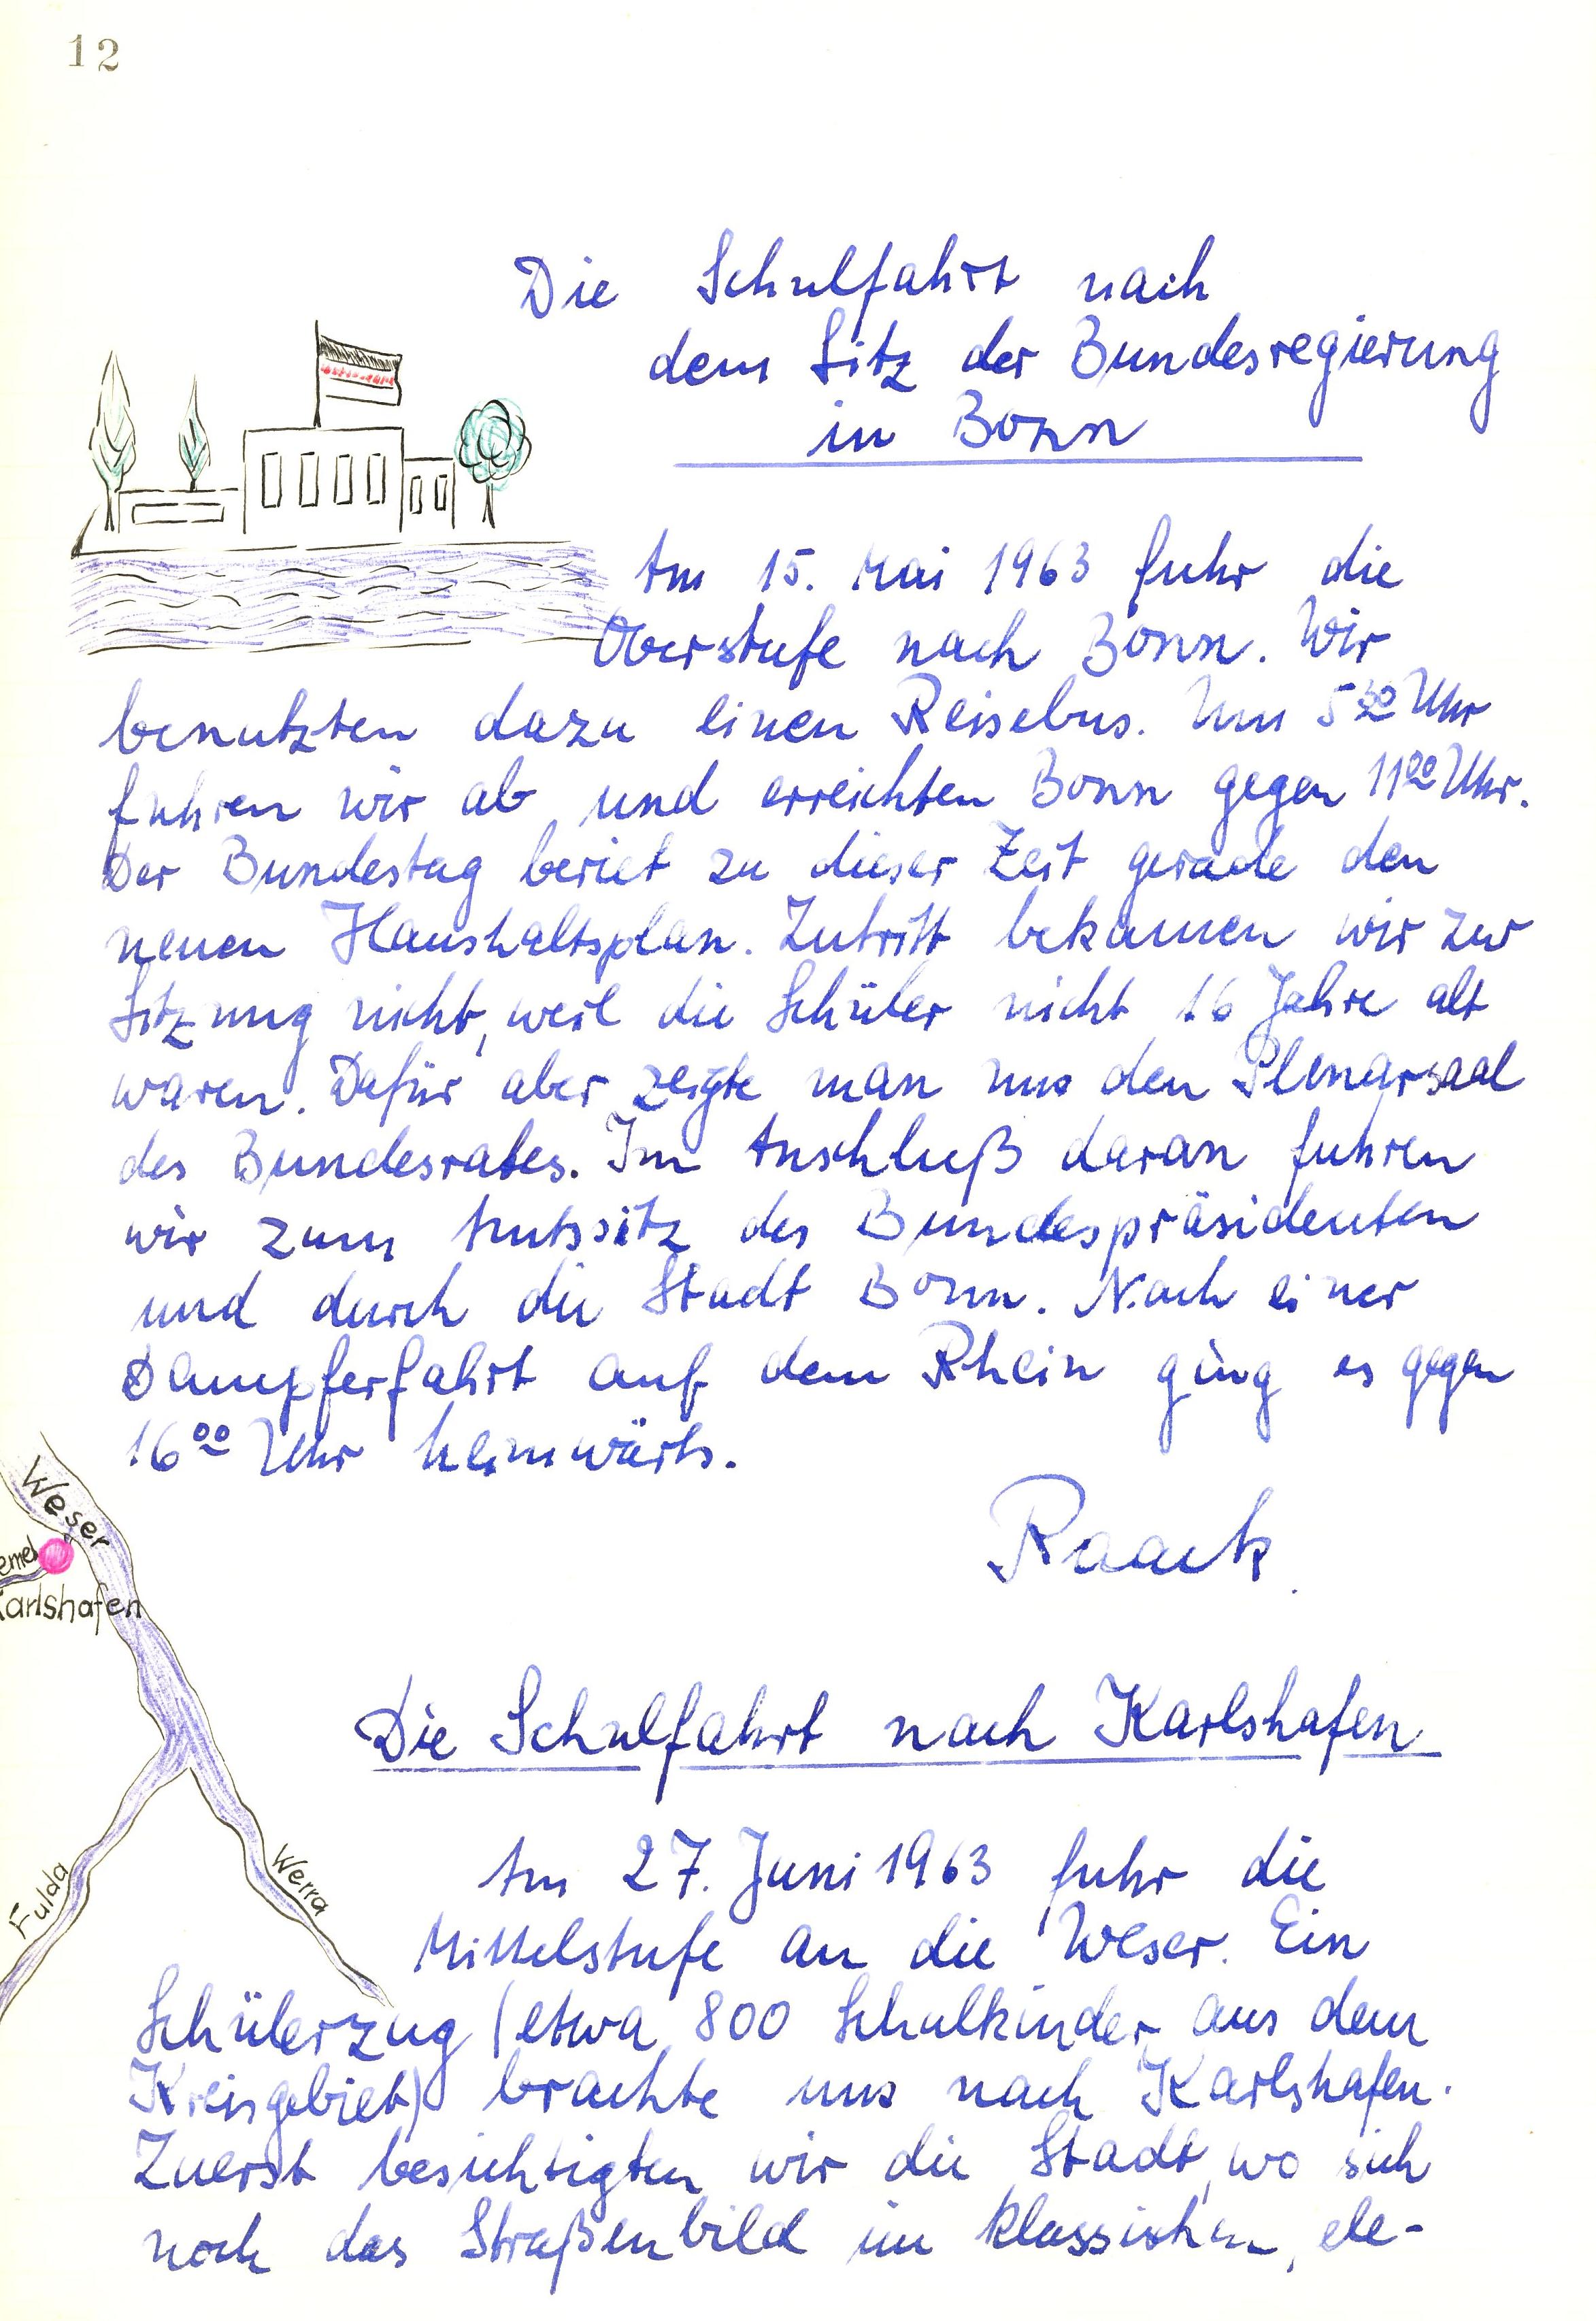 12
Die Schulfahrt nach
dem Sitz der Bundesregierung
in Bonn
Am 15. Mai 1963 fuhr die
Oberstufe nach Bonn. Wir
benutzten dazu einen Reisebus. Um 5³⁰ Uhr
fuhren wir ab und erreichten Bonn gegen 11⁰⁰ Uhr.
Der Bundestag beriet zu dieser Zeit gerade den
neuen Haushaltsplan. Zutritt bekamen wir zur
Sitzung nicht, weil die Schüler nicht 16 Jahre alt
waren. Dafür aber zeigte man uns den Plenarsaal
des Bundesrates. Im Anschluß daran fuhren
wir zum Amtssitz des Bundespräsidenten
und durch die Stadt Bonn. Nach einer
Dampferfahrt auf dem Rhein ging es gegen
16⁰⁰ Uhr heimwärts.
Raack
Weser
emel
Karlshafen
Fulda
Werra
Die Schulfahrt nach Karlshafen
Am 27. Juni 1963 fuhr die
Mittelstufe an die Weser. Ein
Schülerzug (etwa 800 Schulkinder aus dem
Kreisgebiet) brachte uns nach Karlshafen.
Zuerst besichtigten wir die Stadt, wo sich
noch das Straßenbild im klassischen, ele-